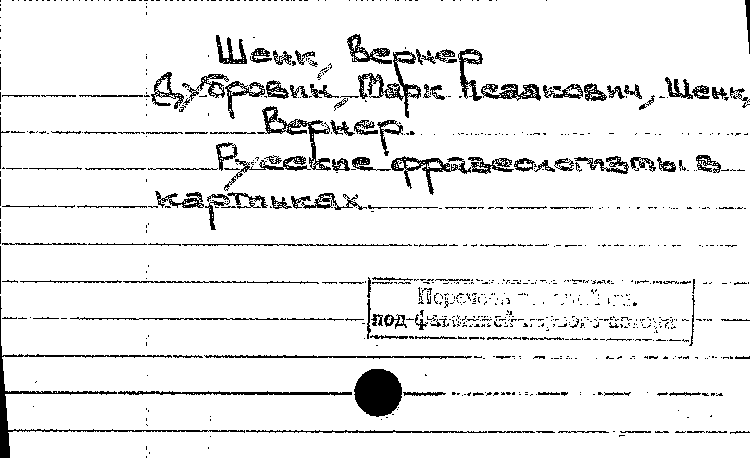 Шенк, Вернер
Дубровин, Марк Исаакович, Шенк,
Вернер.
Русские фразеологизмы в
картинках.
под фамилией первого автора